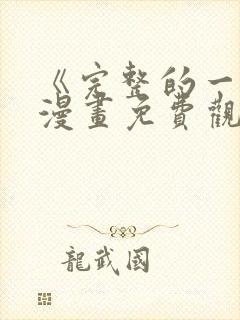 《完整的一
漫畫免費觀
龍武國